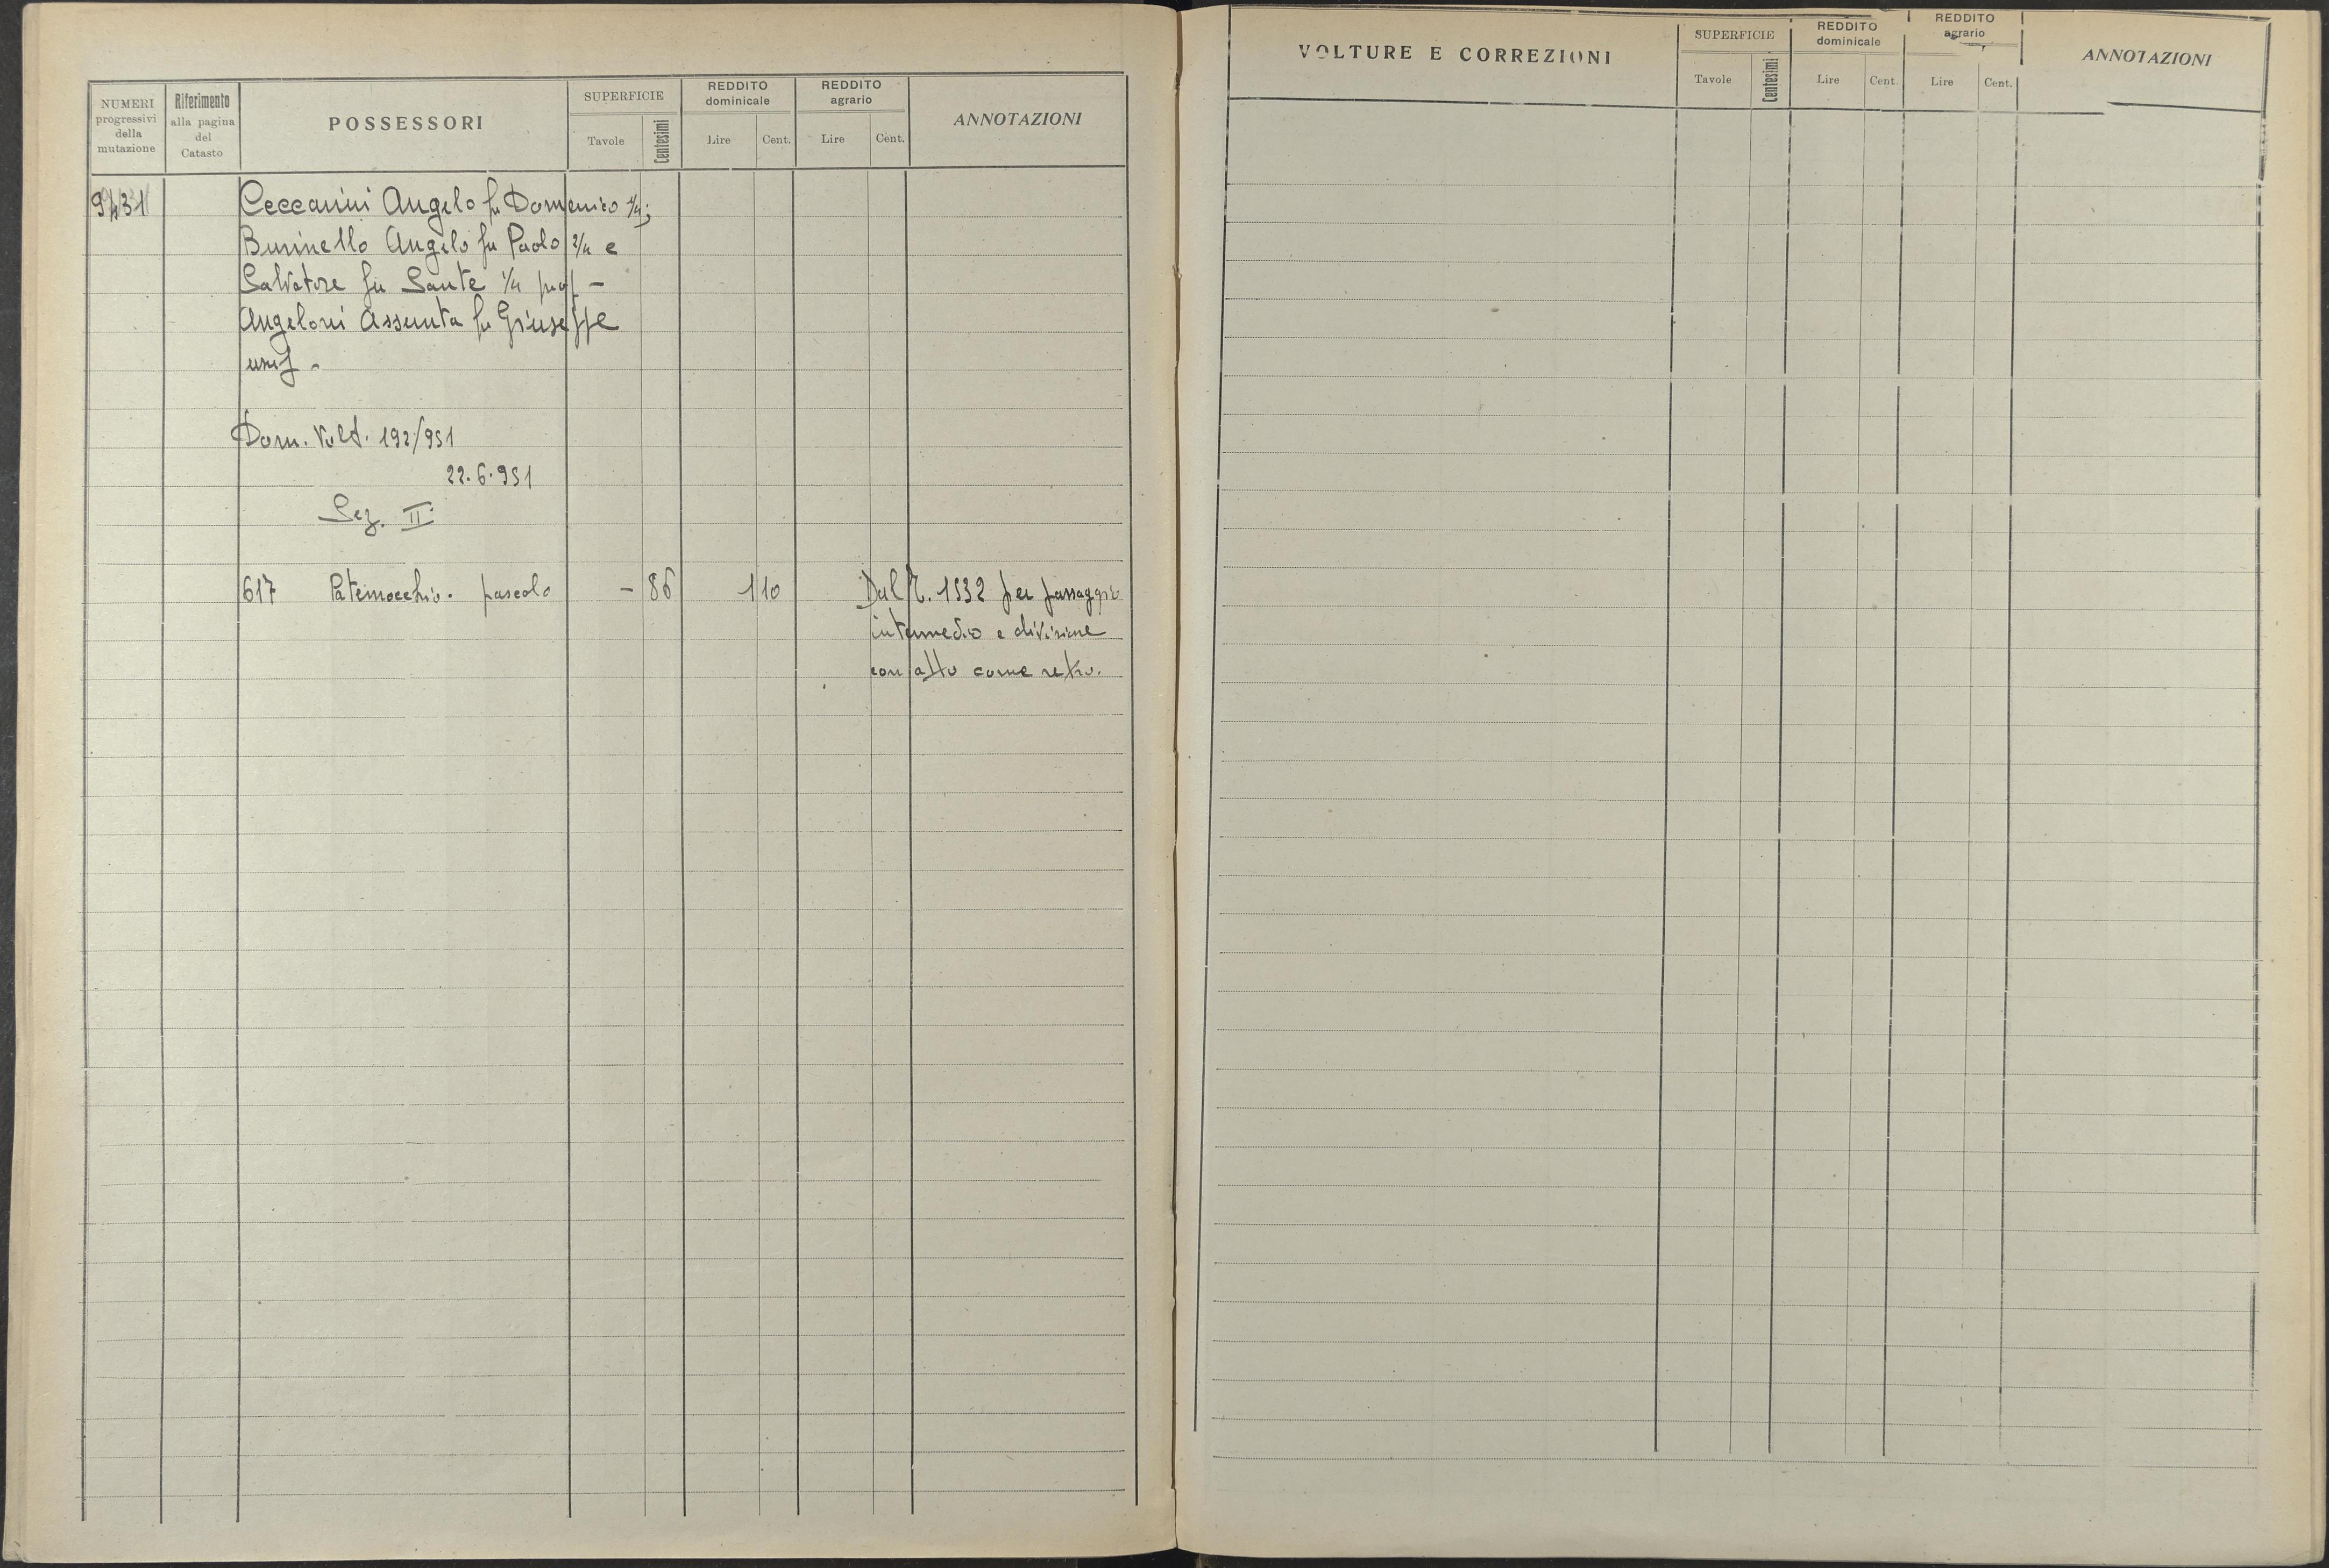 NUMERI progressivi della mutazione
Riferimento alla pagina del Catasto
POSSESSORI
SUPERFICIE
Tavole
Centesimi
REDDITO dominicale
Lire
Cent.
REDDITO agrario
Lire
Cent.
ANNOTAZIONI
9431
Ceccanini Angelo fu Domenico 1/4;
Burinello Angelo fu Paolo 2/4 e
Salvatore fu Sante 1/4 prop -
Angeloni Assunta fu Giuseppe
usuf -
Dom. Volt. 192/951
22.6.951
Sez. II
617 Paternocchio. pascolo - 86 1 10 Dal N. 1532 per passaggio
intermedio e divisione
con atto come retro.
VOLTURE E CORREZIONI
SUPERFICIE
Tavole
Centesimi
REDDITO dominicale
Lire
Cent.
REDDITO agrario
Lire
Cent.
ANNOTAZIONI